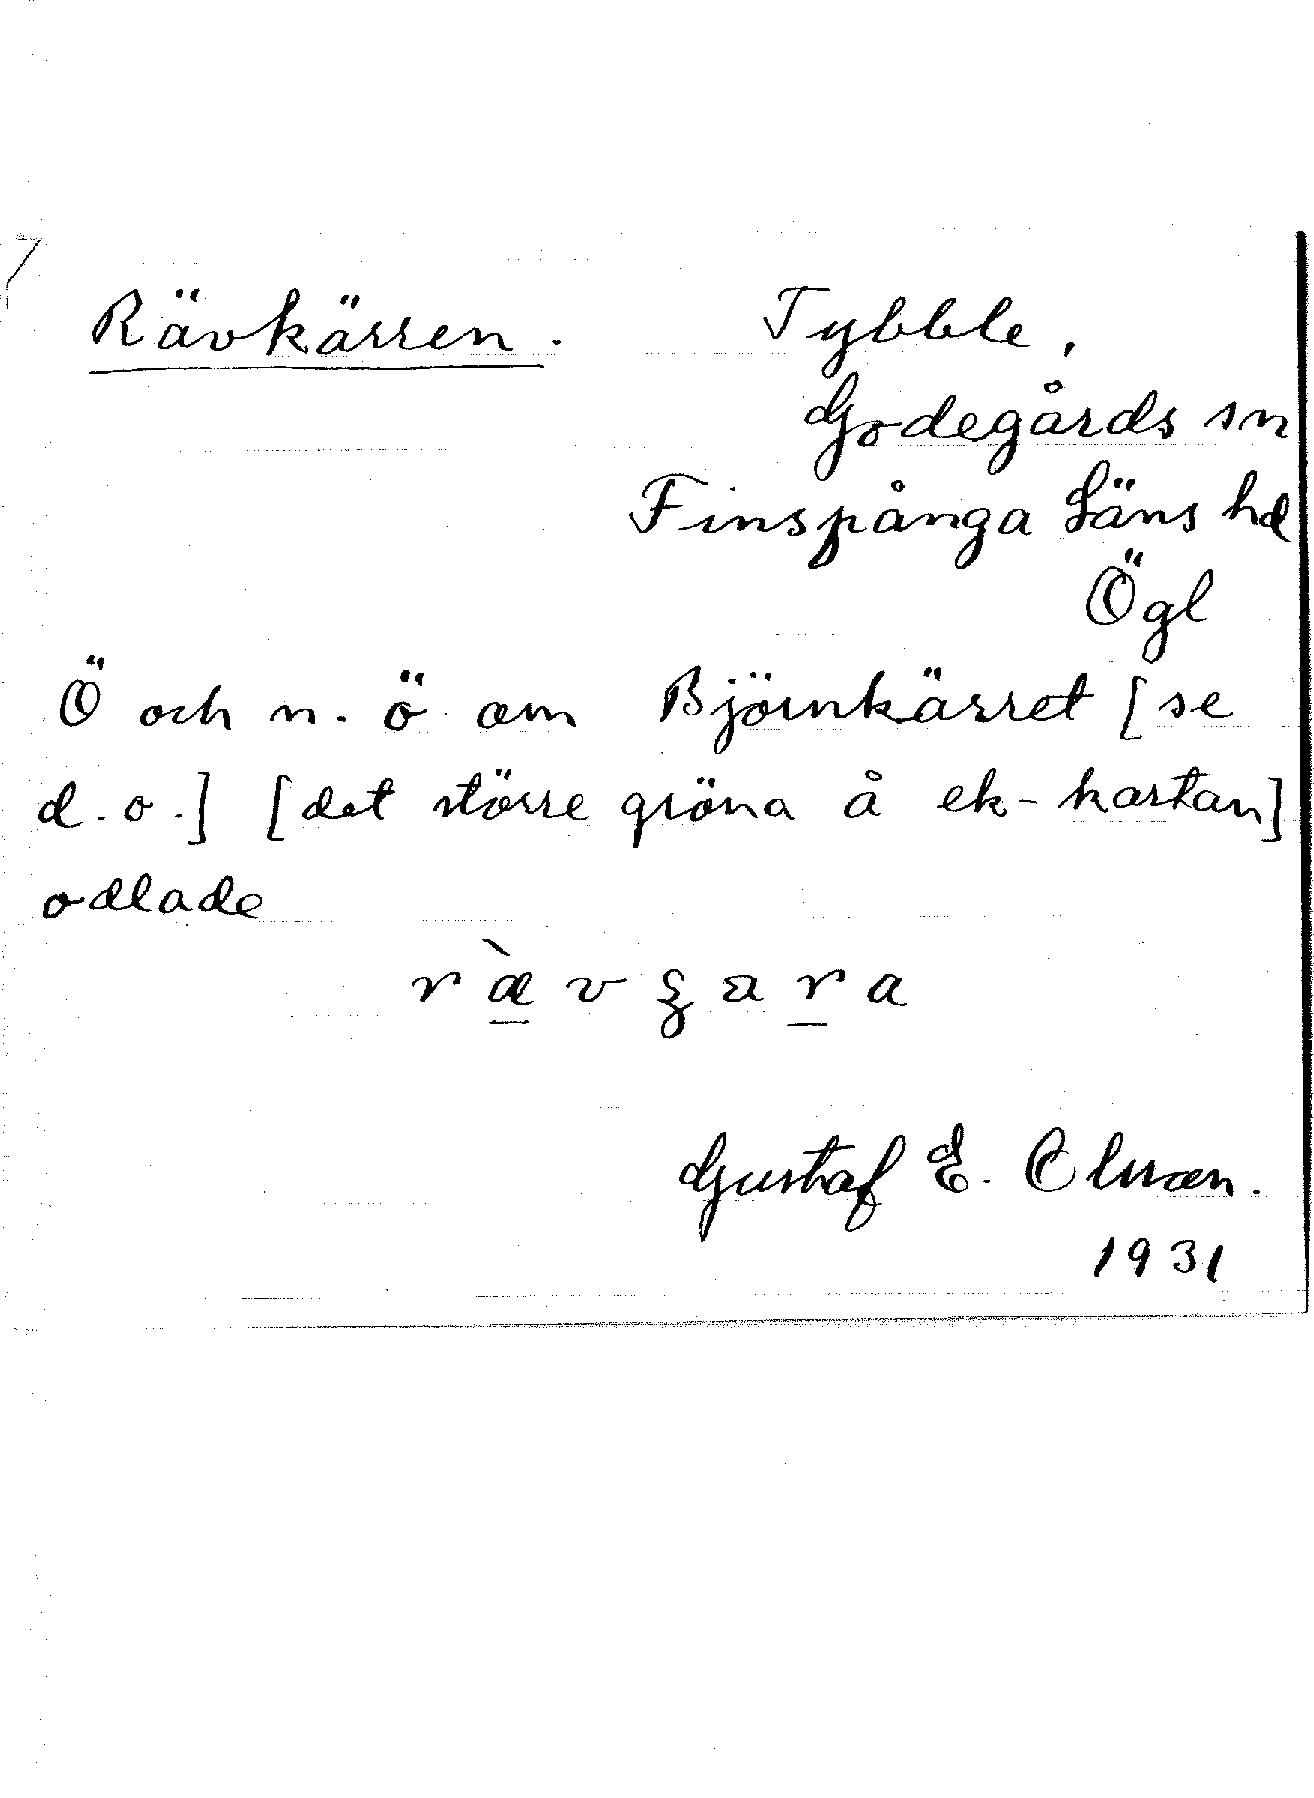 Rävkärren. Tybble,
Godegårds sn
Finspånga Läns hd
Ögl
Ö och n.ö om Björnkärret [se
d.o.] [det större gröna å ek-kartan]
odlade
Gustaf E. Olsson.
1931